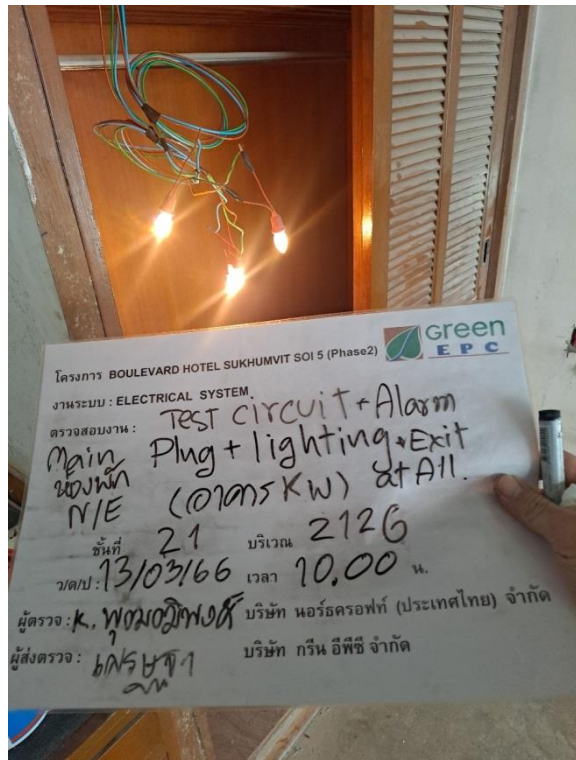 Green
EPC
โครงการ BOULEVARD HOTEL SUKHUMVIT SOI 5 (Phase2)
งานระบบ : ELECTRICAL SYSTEM
ตรวจสอบงาน : Test circuit + Alarm
Main Plug + lighting + Exit
ห้องพัก (อาคาร KW) at All.
N/E
ชั้นที่ 21 บริเวณ 2126
ว/ด/ป : 13/03/66 เวลา 10.00 น.
ผู้ตรวจ : K. บริษัท นอร์ธครอฟท์ (ประเทศไทย) จำกัด
ผู้ส่งตรวจ : เศรษฐา บริษัท กรีน อีพีซี จำกัด